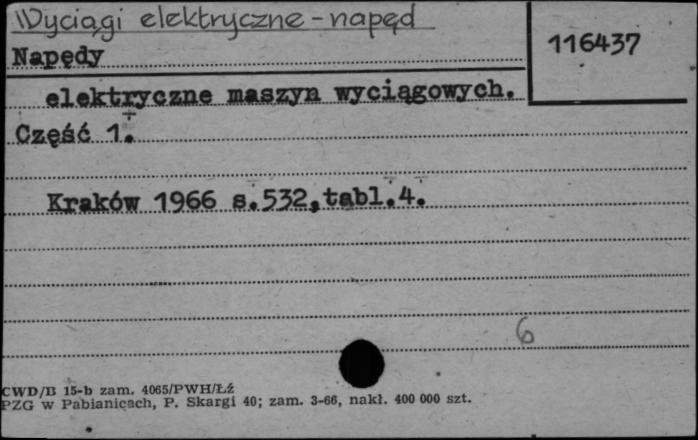 Wyciągi elektryczne - napęd
116437
Napędy
elektryczne maszyn wyciągowych.
Część 1.
Kraków 1966 s.532,tabl.4.
6
CWD/B 15-b zam. 4065/PWH/Łź
PZG w Pabianicach, P. Skargi 40; zam. 3-66, nakł. 400 000 szt.